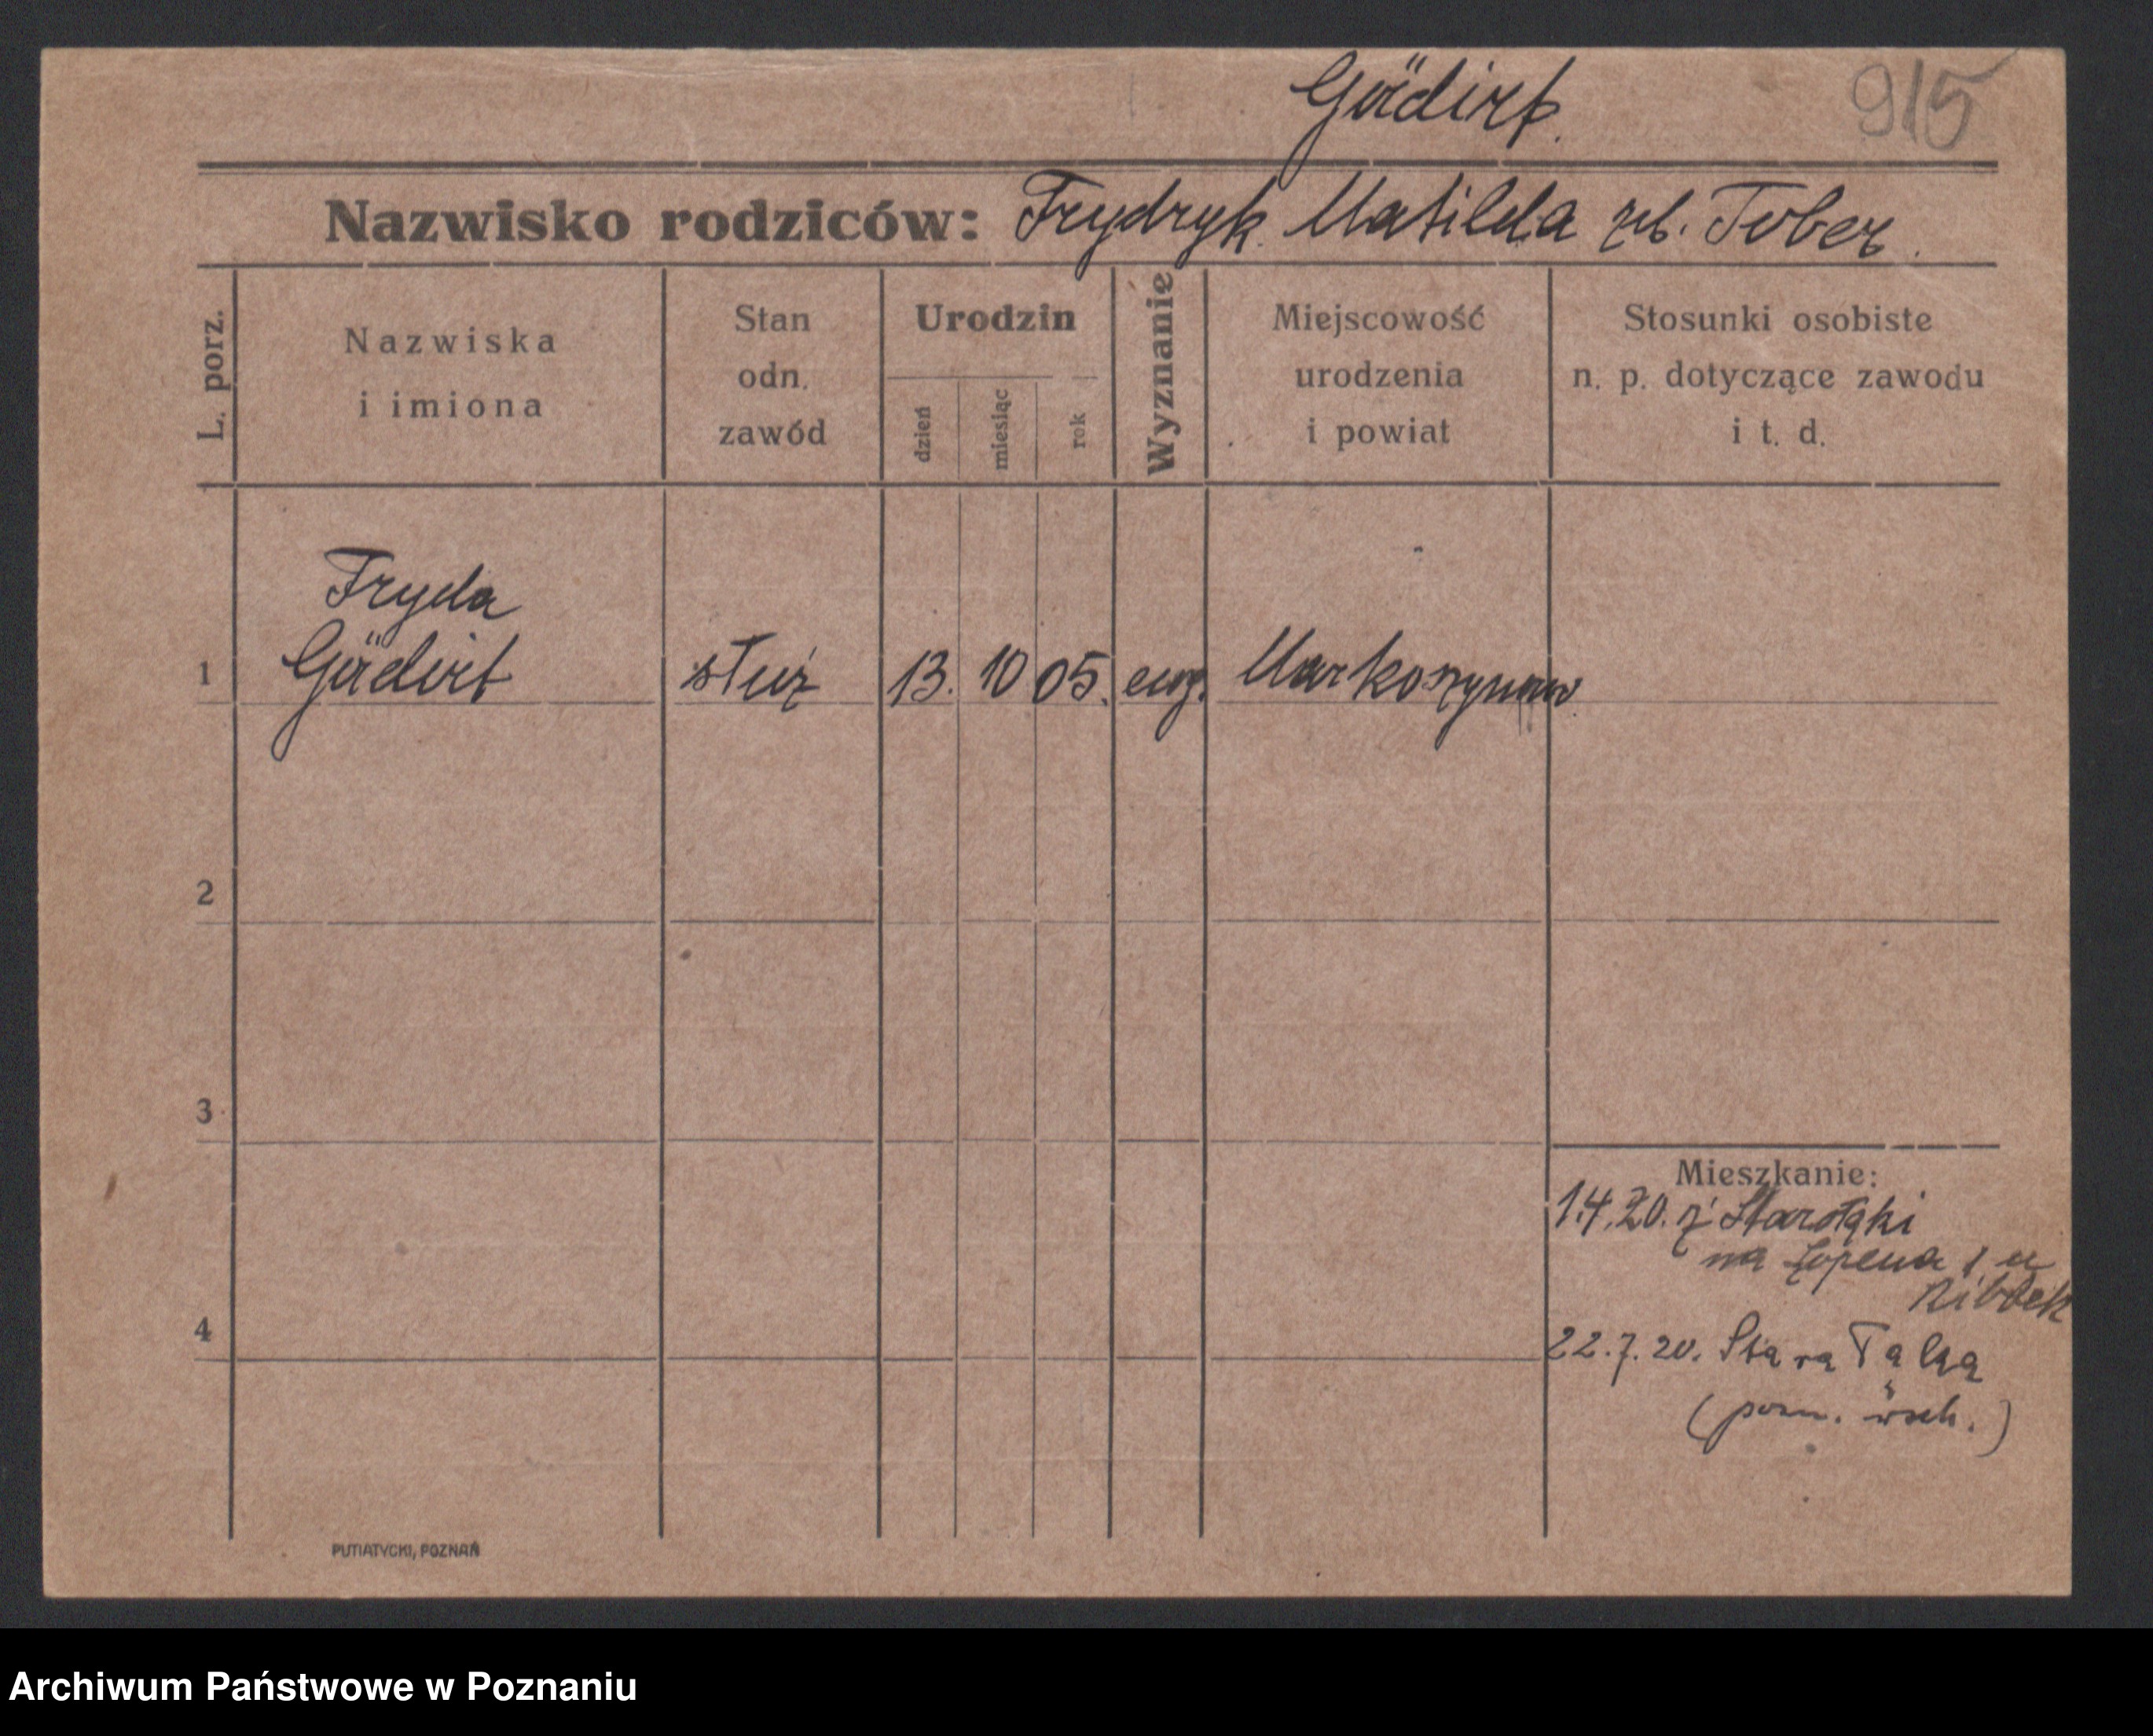 Gädirt.
915
Nazwisko rodziców: Frydryk Matilda zeb. Tober.
L. porz.
Nazwiska i imiona
Stan odn. zawód
Urodzin
dzień
miesiąc
rok
Wyznanie
Miejscowość urodzenia i powiat
Stosunki osobiste n. p. dotyczące zawodu i t. d.
Fryda
1 Gädirt służ 13. 10 05. ewg.
2
3
4
Mieszkanie:
1.4.20. z Starołąki
na
22.7.20. Stara
PUTIATYCKI, POZNAŃ
Archiwum Państwowe w Poznaniu